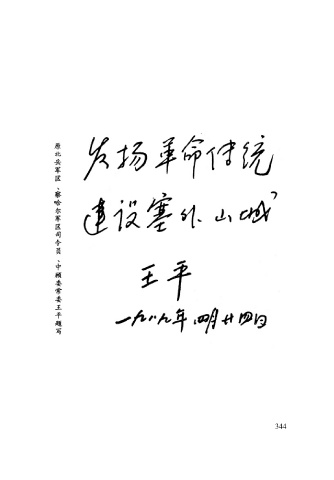 发扬革命传统
建设塞外山城
王平
一九八九年四月廿四日
原北岳军区、察哈尔军区司令员、中顾委常委王平题写
344